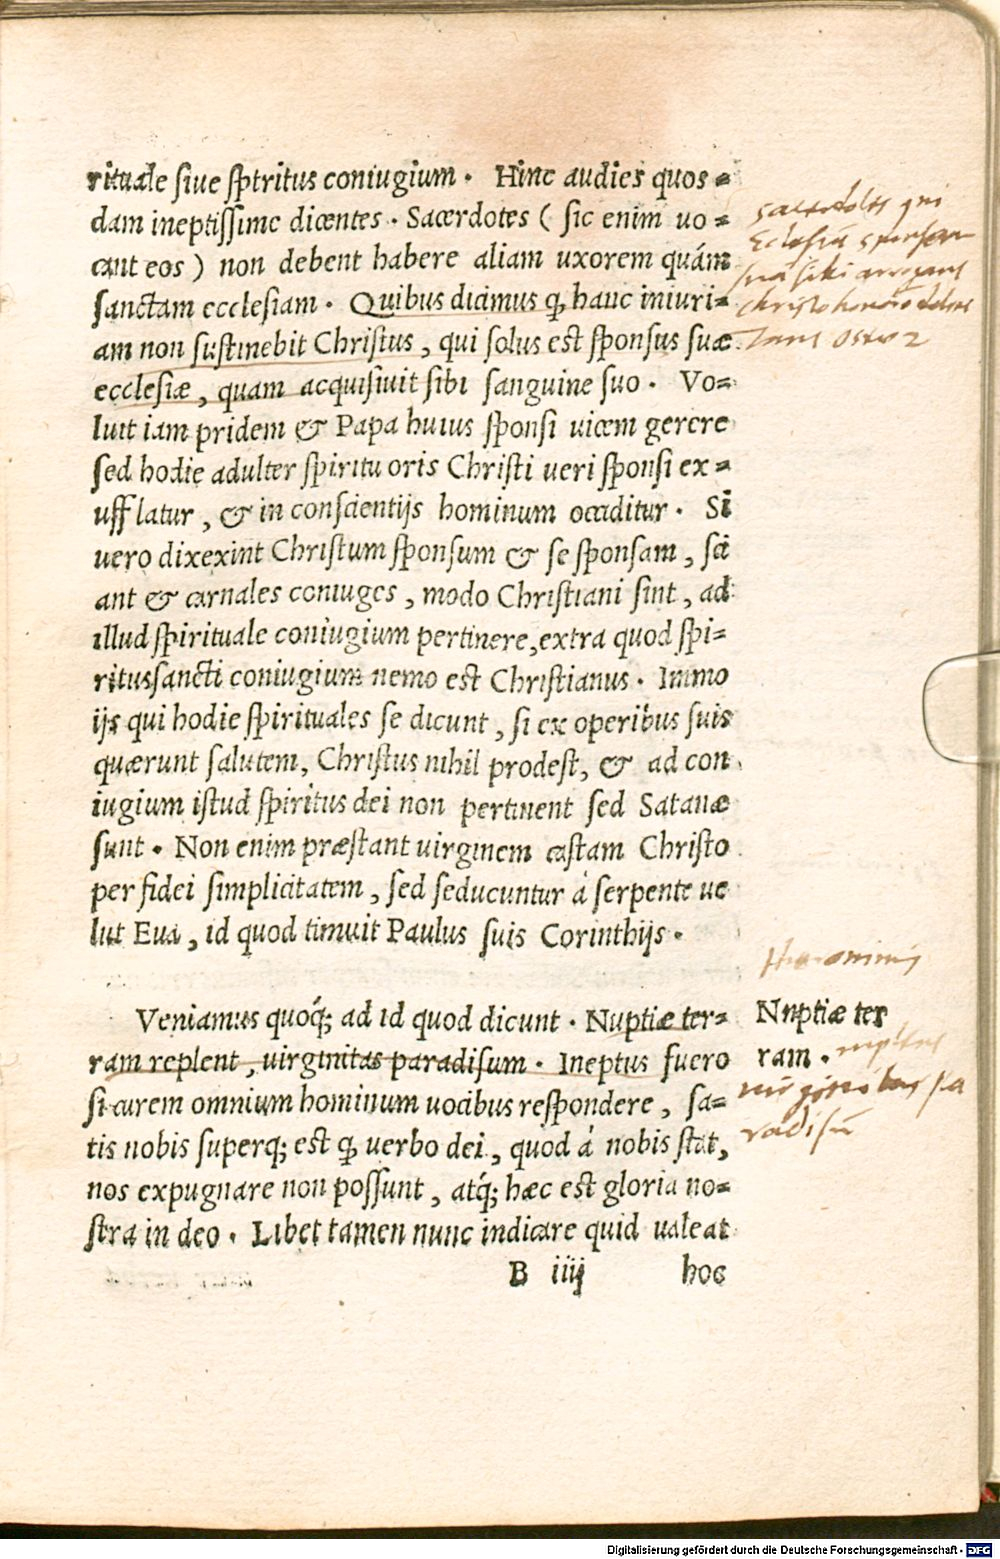 rituale siue sptritus coniugium. Hinc audies quos=
dam ineptissime dicentes. Sacerdotes ( sic enim uo=
cant eos ) non debent habere aliam uxorem quám
sanctam ecclesiam. Quibus dicimus ꝙ hanc iniuri=
am non sustinebit Christus, qui solus est sponsus suæ
ecclesiæ, quam acquisiuit sibi sanguine suo. Vo=
luit iam pridem & Papa huius sponsi uicem gerere
sed hodie adulter spiritu oris Christi ueri sponsi ex=
ufflatur, & in conscientijs hominum occiditur. Si
uero dixexint Christum sponsum & se sponsam, sci
ant & carnales coniuges, modo Christiani sint, ad
illud spirituale coniugium pertinere, extra quod spi=
ritussancti coniugium nemo est Christianus. Immo
ijs qui hodie spirituales se dicunt, si ex operibus suis
quærunt salutem, Christus nihil prodest, & ad con
iugium istud spiritus dei non pertinent sed Satanæ
sunt. Non enim præstant uirginem castam Christo
per fidei simplicitatem, sed seducuntur á serpente ue
lut Eua, id quod timuit Paulus suis Corinthijs.
Veniamus quoq́; ad id quod dicunt. Nuptiæ ter=
ram replent, uirginitas paradisum. Ineptus fuero
si curem omnium hominum uocibus respondere, sa=
tis nobis superq; est ꝙ uerbo dei, quod á nobis stat,
nos expugnare non possunt, atq́; hæc est gloria no=
stra in deo. Libet tamen nunc indicare quid ualeat
B iiij hoc
sacerdotes qui
Ecclesiā sponsam
christo
Nnptiæ ter
ram.
radisū
Digitalisierung gefördert durch die Deutsche Forschungsgemeinschaft - DFG